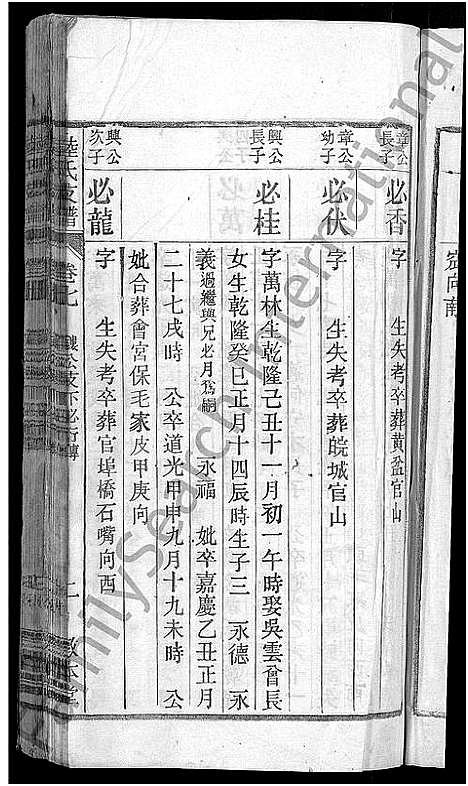 定向南
章公長子
必香
字　生失考卒葬黃盆官山
章公幼子
必伏
字　生失考卒葬皖城官山
興公長子
必桂
字萬林生乾隆己丑十一月初一午時娶吳雲曾長
女生乾隆癸巳正月十四辰時生子三　永德　永
義過繼興兄必月爲嗣　永福　妣卒嘉慶乙丑正月
二十七戌時　公卒道光甲申九月十九未時　公
妣合葬會宮保毛家皮甲庚向
興公次子
必龍
字　生失考卒葬官埠橋石嘴向西
陸氏支譜
卷七
公支下必行傳
二
敦本堂
FamilySearch International